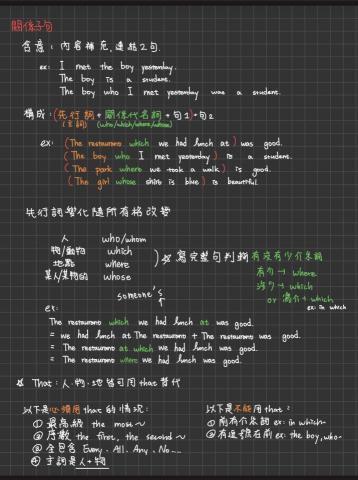 關係子句
含意：內容補充，連結2句.
ex: I met the boy yesterday.
The boy is a student.
The boy who I met yesterday was a student.
構成：(先行詞 + 關係代名詞 + 句1) + 句2
(主詞) (who/which/where/whose)
ex: (The restaurant which we had lunch at) was good.
(The boy who I met yesterday) is a student.
(The park where we took a walk) is good.
(The girl whose shirt is blue) is beautiful.
先行詞變化隨所有格改變
人 who/whom
物/動物 which
地點 where
某人/某物的 whose
寫完整句判斷 有沒有少介系詞
有少 → where
沒少 → which
or 介 + which
ex: in which
someone's
ex:
The restaurant which we had lunch at was good.
= we had lunch at The restaurant + The restaurant was good.
= The restaurant at which we had lunch was good.
= The restaurant where we had lunch was good.
That：人.物.地皆可用that替代
以下是必須用that的情況：
① 最高級 the most~
② 序數 the first, the second~
③ 全包含 Every. All. Any. No...
④ 主詞是人+物
以下是不能用that：
① 前有介系詞 ex: in which~
② 有逗號在前 ex: the boy, who~